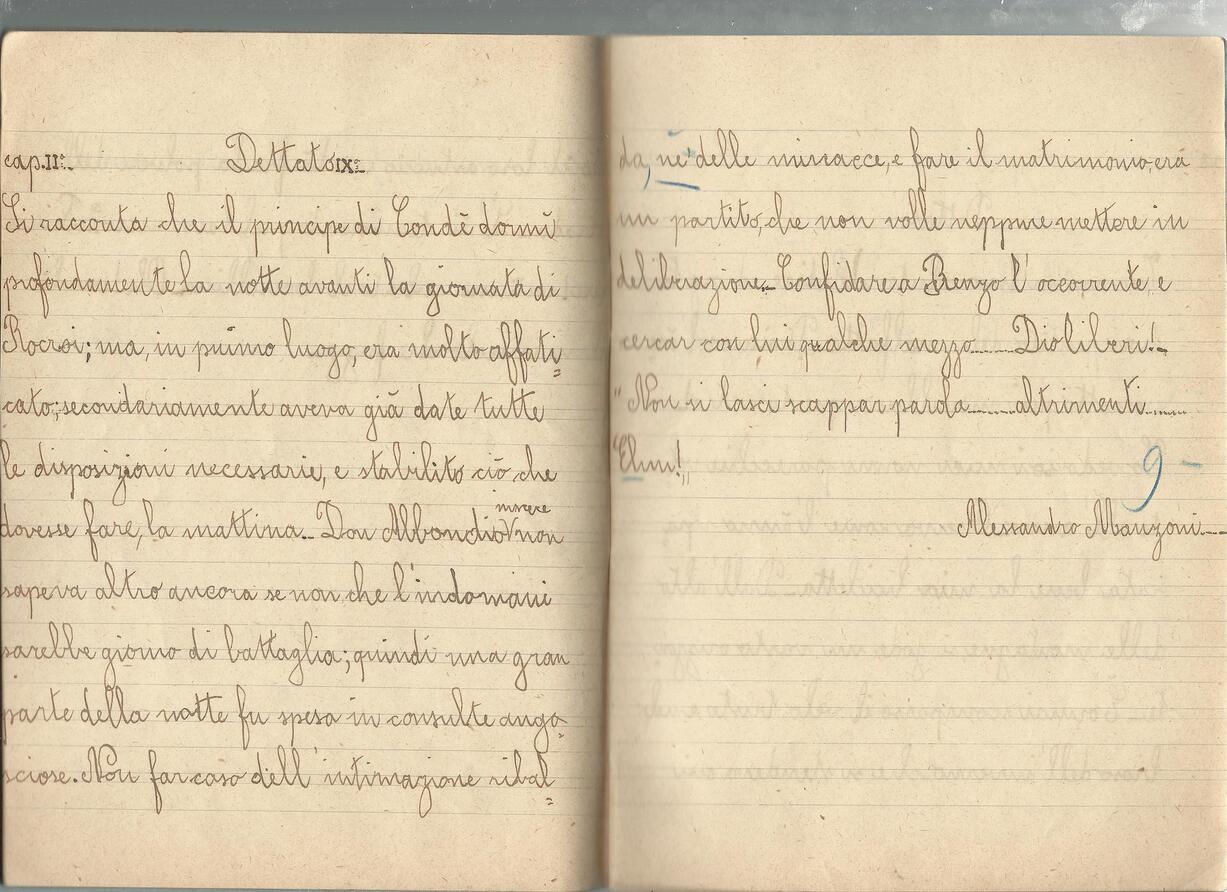 cap. II:
Dettato IX:
Si racconta che il principe di Condè dormì
profondamente la notte avanti la giornata di
Rocroi; ma, in primo luogo, era molto affati=
cato; secondariamente aveva già date tutte
le disposizioni necessarie, e stabilito ciò che
dovesse fare, la mattina. Don Abbondio invece non
sapeva altro ancora se non che l'indomani
sarebbe giorno di battaglia; quindi una gran
parte della notte fu spesa in consulte ango=
sciose. Non far caso dell'intimazione ribal=
da, nè delle minacce, e fare il matrimonio, era
un partito, che non volle neppure mettere in
deliberazione. Confidare a Renzo l'occorrente, e
cercar con lui qualche mezzo...... Dio liberi!
"Non si lasci scappar parola...... altrimenti......
Ehm!"
9-
Alessandro Manzoni.